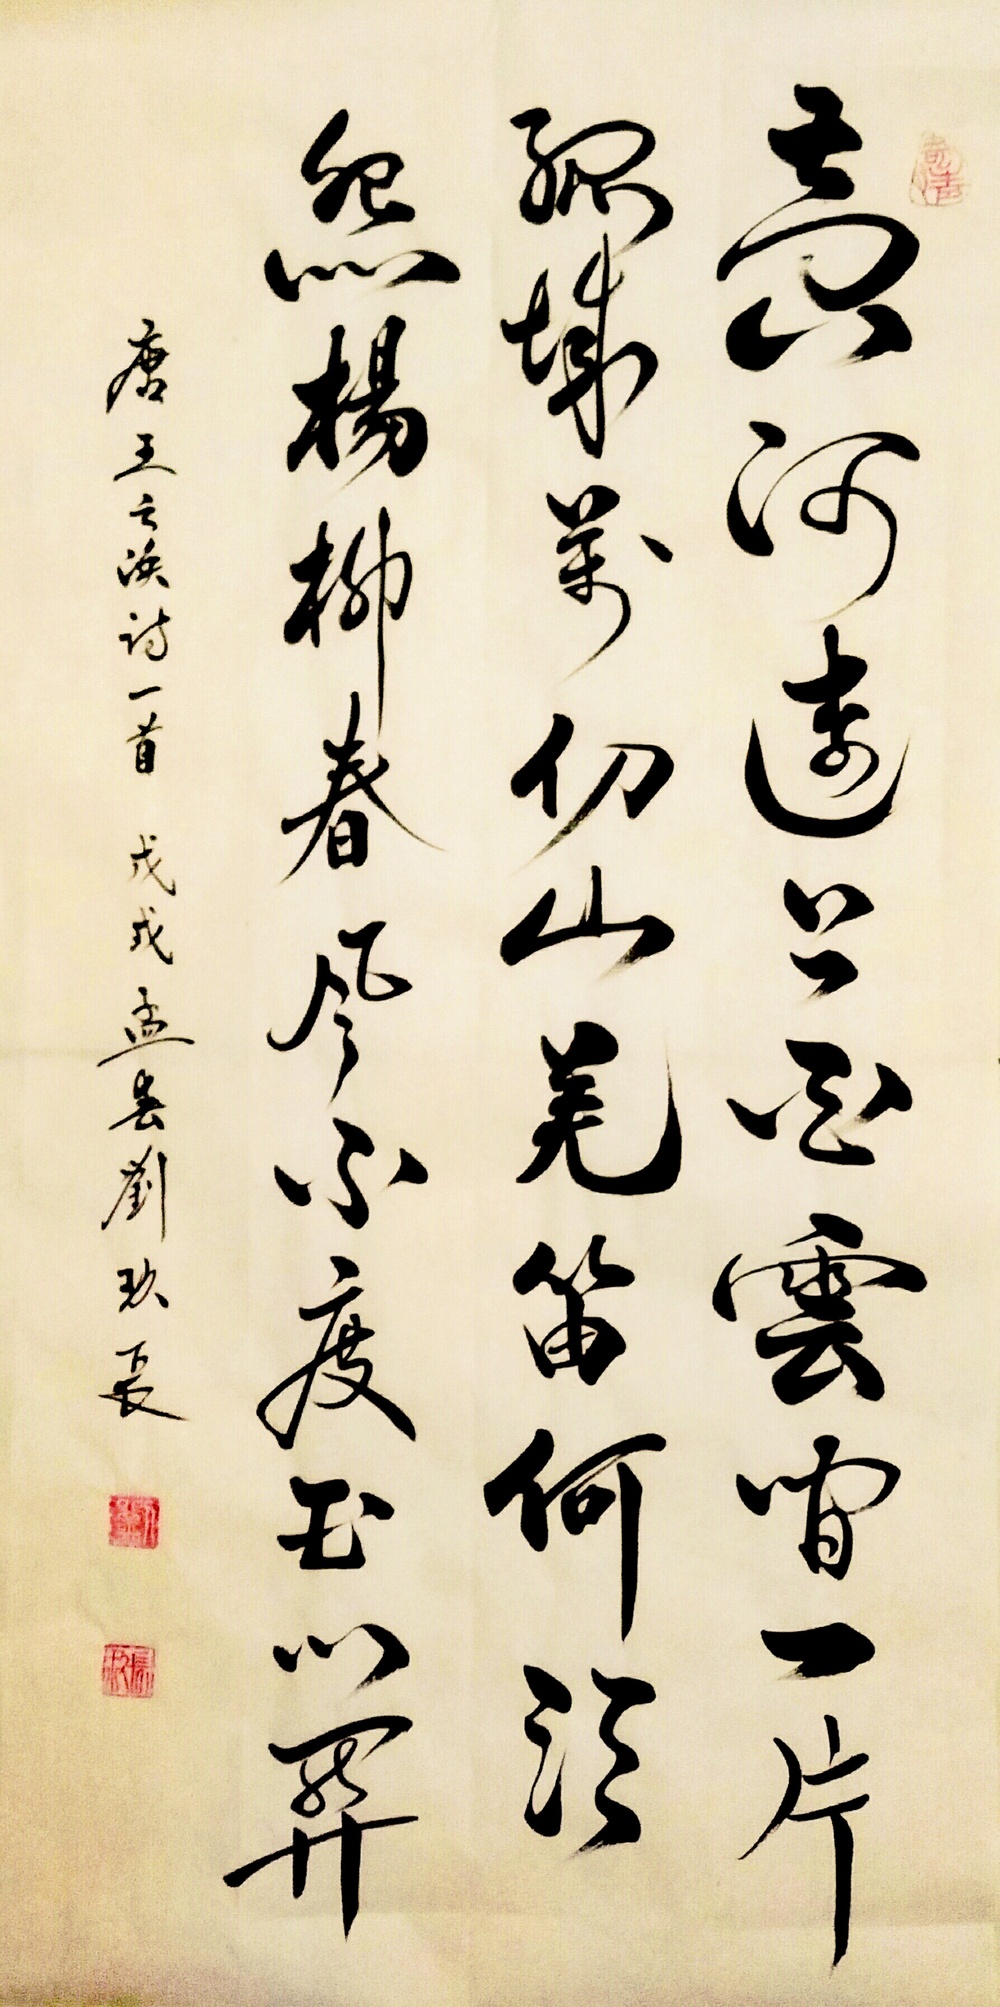 黄河遠上白雲間一片
孤城萬仞山羌笛何須
怨楊柳春風不度玉門關
唐王之渙詩一首 戊戌孟春劉玖長